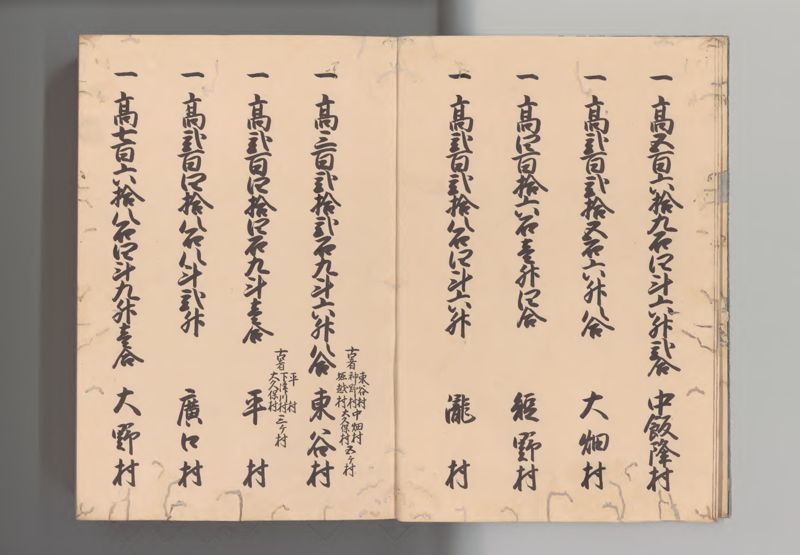 一 高五百六拾九石四斗六升弐合 中飯降村
一 高弐百弐拾五石六升八合 大畑村
一 高四百拾六石壱升四合 短野村
一 高弐百弐拾八石四斗六升 瀧村
一 高三百弐拾弐石九斗六升八合 東谷村
古者 東谷村 中畑村 神野村 大久保村 堀越村 五ケ村
一 高弐百四拾四石九斗壱合 平村
古者 平村 下津川村 大久保村 三ケ村
一 高弐百四拾八石八斗弐升 廣口村
一 高七百六拾八石四斗九升壱合 大野村